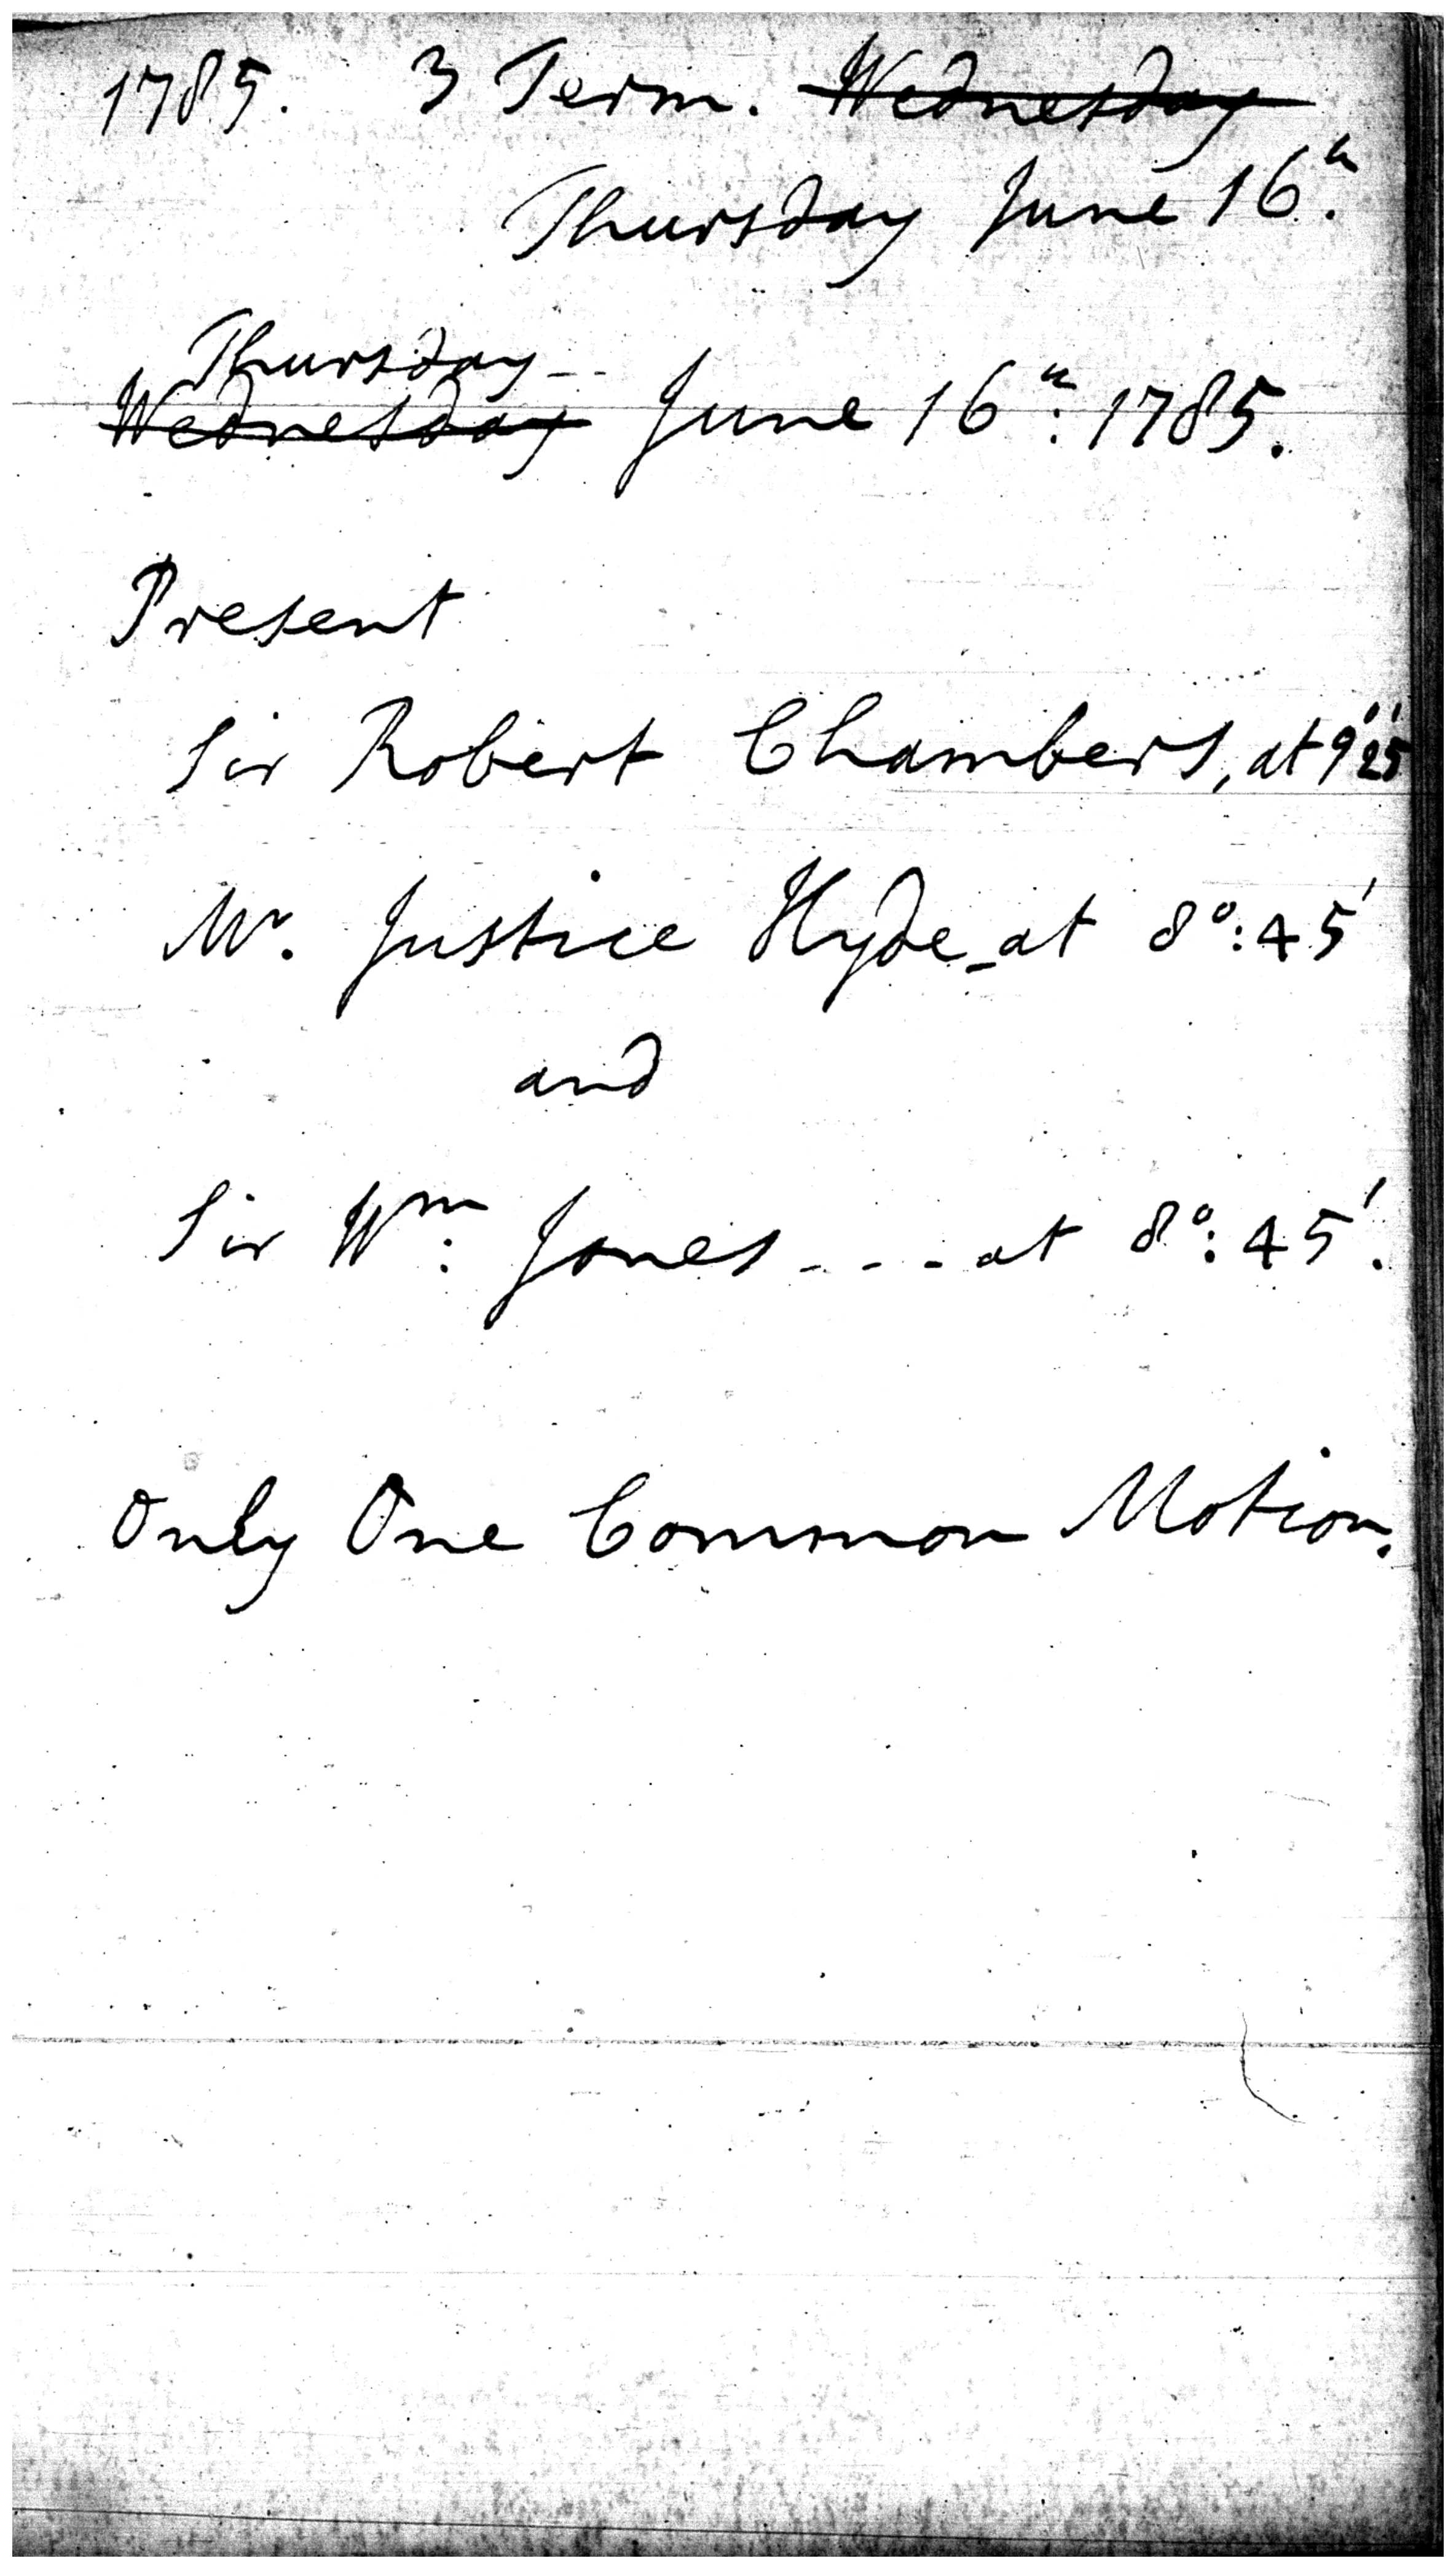 1785. 3 Term. Wednesday
Thursday June 16th.
Thursday--
Wednesday June 16th: 1785.
Present
Sir Robert Chambers, at 9° 25'
Mr. Justice Hyde - at 8°: 45'
and
Sir Wm: Jones - - - at 8°: 45'.
Only One Common Motion.